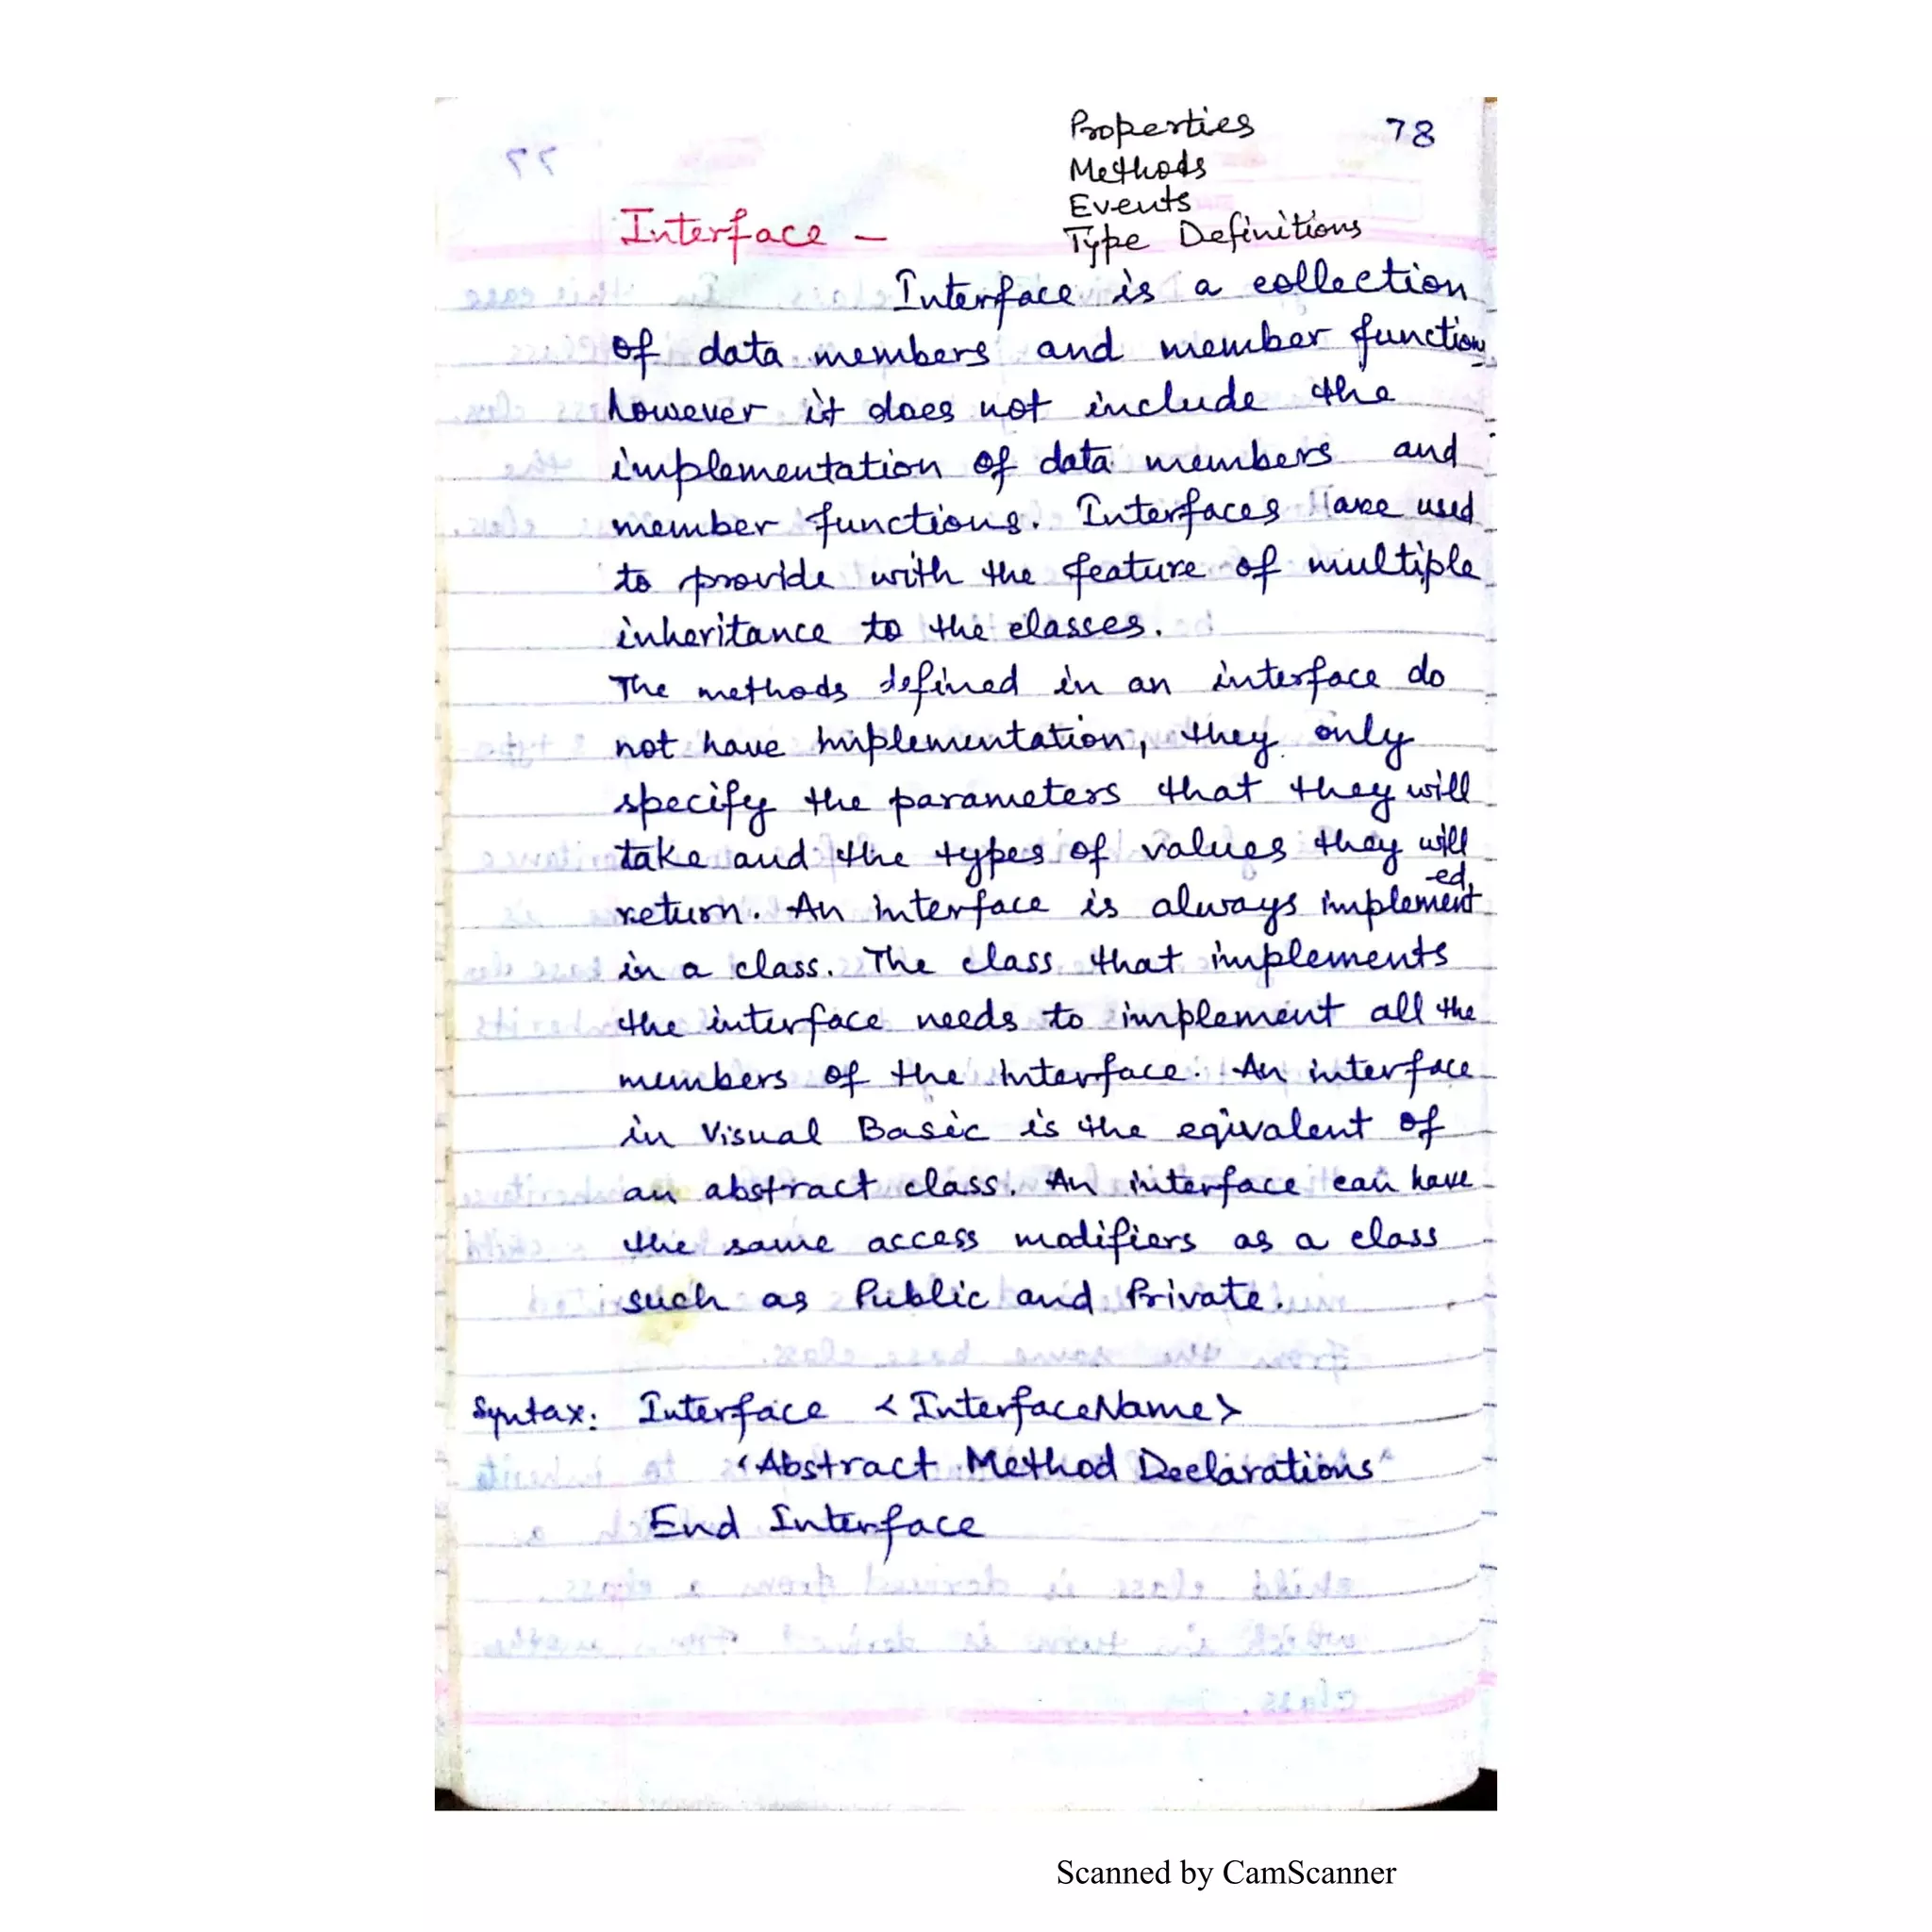 Properties 78
Methods
Events
Type Definitions
Interface –
Interface is a collection
of data members and member functions
however it does not include the
implementation of data members and
member functions. Interfaces are used
to provide with the feature of multiple
inheritance to the classes.
The methods defined in an interface do
not have implementation, they only
specify the parameters that they will
take and the types of values they will
return. An interface is always implement-ed
in a class. The class that implements
the interface needs to implement all the
members of the interface. An interface
in Visual Basic is the eqivalent of
an abstract class. An interface can have
the same access modifiers as a class
such as Public and Private.
Syntax: Interface <InterfaceName>
'Abstract Method Declarations"
End Interface
Scanned by CamScanner